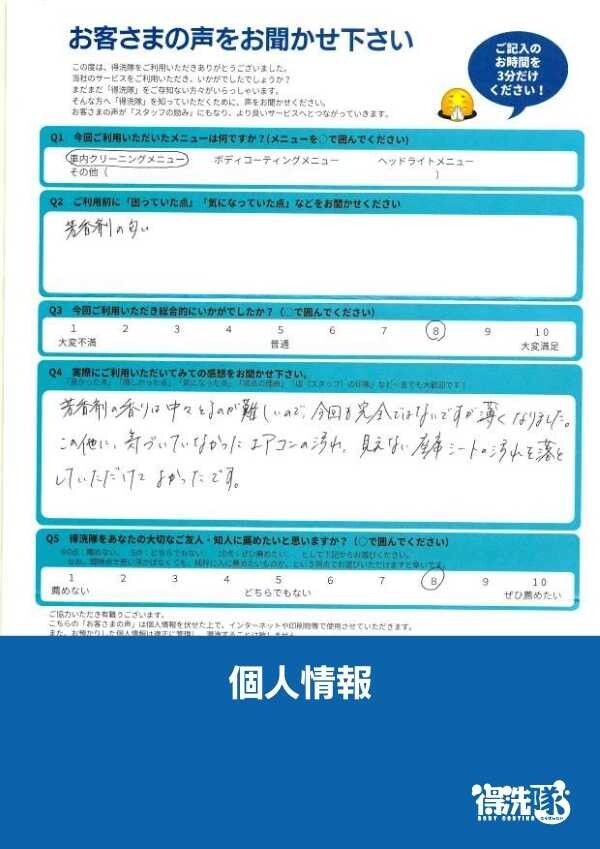 お客さまの声をお聞かせ下さい
ご記入の
お時間を
3分だけ
ください！
この度は、得洗隊をご利用いただきありがとうございました。
当社のサービスをご利用いただき、いかがでしたでしょうか？
まだまだ「得洗隊」をご存知ない方々がいらっしゃいます。
そんな方へ「得洗隊」を知っていただくために、声をお聞かせください。
お客さまの声が「スタッフの励み」にもなり、より良いサービスへとつながっていきます。
Q1 今回ご利用いただいたメニューは何ですか？(メニューを○で囲んでください)
車内クリーニングメニュー ボディコーティングメニュー ヘッドライトメニュー
その他（ ）
Q2 ご利用前に「困っていた点」「気になっていた点」などをお聞かせください
芳香剤の匂い
Q3 今回ご利用いただき総合的にいかがでしたか？（○で囲んでください）
1 2 3 4 5 6 7 8 9 10
大変不満 普通 大変満足
Q4 実際にご利用いただいてみての感想をお聞かせ下さい。
「良かった点」「嬉しかった点」「気になった点」「満点の理由」「店（スタッフ）の印象」など一言でも大歓迎です！
芳香剤の香りは中々とるのが難しいので、今回も完全ではないですが薄くなりました。
この他に、気づいていなかったエアコンの汚れ、見えない座席シートの汚れを落と
していただけてよかったです。
Q5 得洗隊をあなたの大切なご友人・知人に薦めたいと思いますか？（○で囲んでください）
※0点：薦めない、 5点：どちらでもない、 10点：ぜひ薦めたい、 として下記からお選びください。
1 2 3 4 5 6 7 8 9 10
薦めない どちらでもない ぜひ薦めたい
ご協力いただき有難うございます。
こちらの「お客さまの声」は個人情報を伏せた上で、インターネットや印刷物等で使用させていただきます。
また、お預かりした個人情報は適正に管理し、
個人情報
得洗隊
BODY COATING